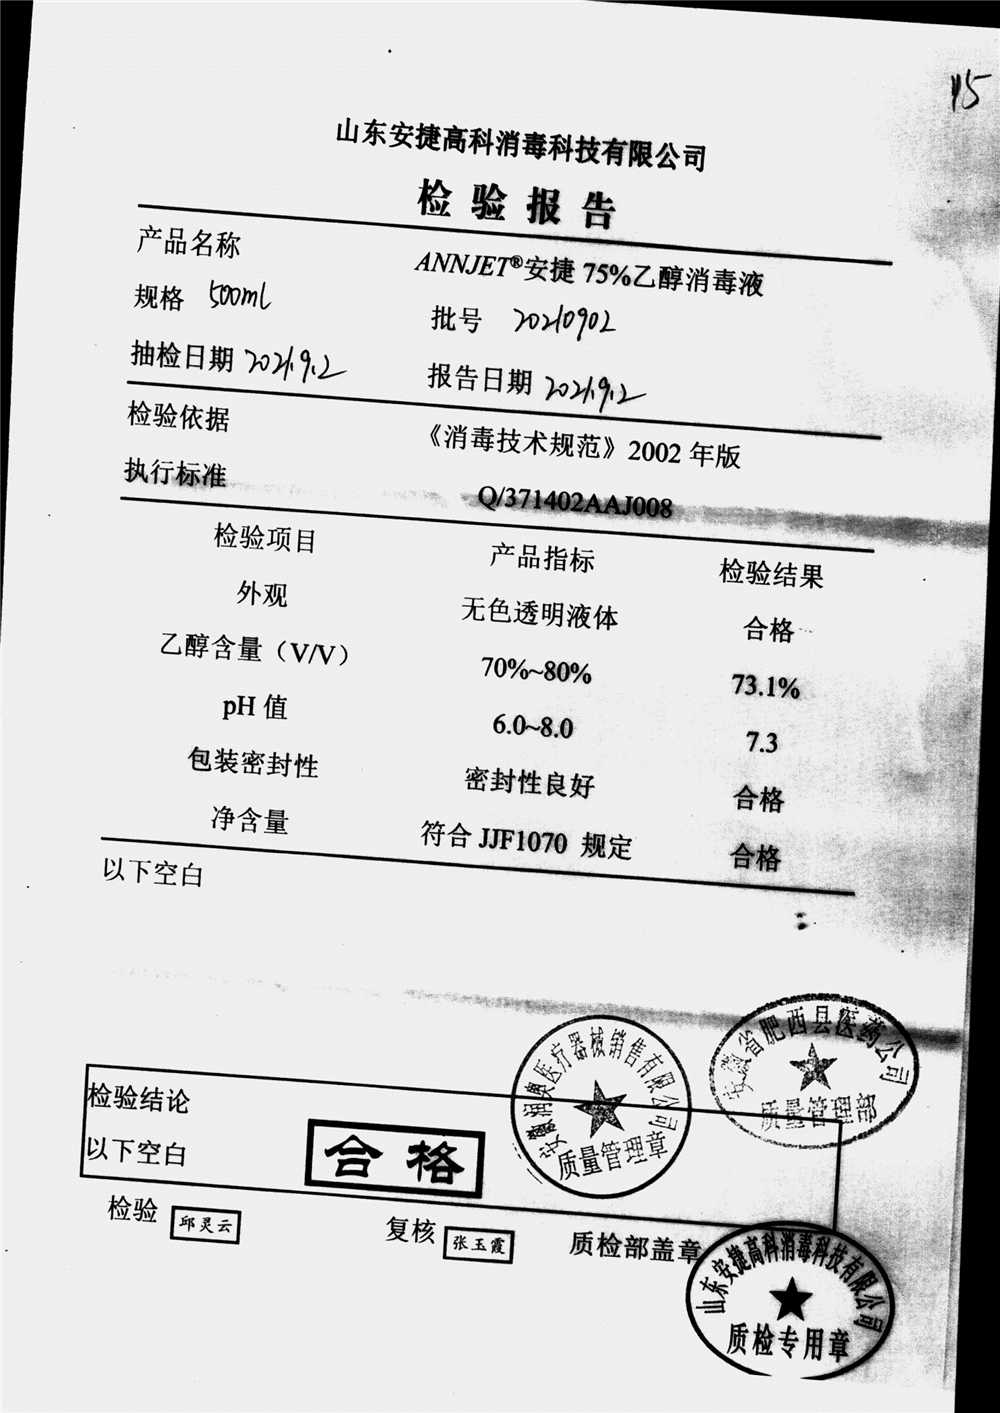 115
山东安捷高科消毒科技有限公司
检验报告
产品名称 ANNJET®安捷 75%乙醇消毒液
规格 500ml 批号 20210902
抽检日期 2021.9.2 报告日期 2021.9.2
检验依据 《消毒技术规范》2002 年版
执行标准 Q/371402AAJ008
检验项目 产品指标 检验结果
外观 无色透明液体 合格
乙醇含量（V/V） 70%~80% 73.1%
pH 值 6.0~8.0 7.3
包装密封性 密封性良好 合格
净含量 符合 JJF1070 规定 合格
以下空白
安徽省肥西县医药公司
质量管理部
安徽润奥医疗器械销售有限公司
质量管理章
检验结论
以下空白
合格
检验 邱灵云 复核 张玉霞 质检部盖章
山东安捷高科消毒科技有限公司
质检专用章